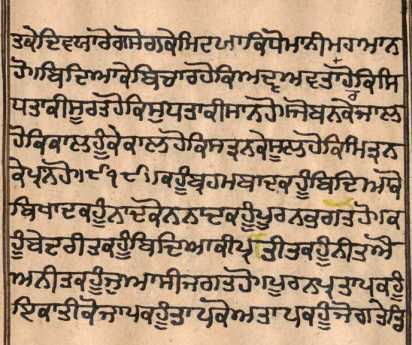 ਤਕੇਦਿਵਯਾਰੋਗਸੋਗਕੇਮਿਟਯਾਕਿਧੋਮਾਨੀਮਹਾਮਾਨ
ਹੋ॥ਬਿਦਿਆਕੇਬਿਚਾਰਹੋਕਿਅਦ੍ਵਅਵਤਾਰਹੋਕਿਸਿ
ਧਤਾਕੀਸੂਰਤਹੋਕਿਸੁਧਤਾਕੀਸਾਨਹੋ॥ਜੋਬਨਕੇਜਾਲ
ਹੋਕਿਕਾਲਹੂੰਕੇਕਾਲਹੋਕਿਸਤ੍ਰਨਕੇਸੂਲਹੋਕਿਮਿਤ੍ਰਨ
ਕੇਪ੍ਰਾਨਹੋ॥੯॥੧੯॥ਕਹੂੰਬ੍ਰਹਮਬਾਦਕਹੂੰਬਿਦਿਆਕੋ
ਬਿਖਾਦਕਹੂੰਨਾਦਕੋਨਨਾਦਕਹੂੰਪੂਰਨਭਗਤਹੋ॥ਕ
ਹੂੰਬੇਦਰੀਤਕਹੂੰਬਿਦਿਆਕੀਪ੍ਰਤੀਤਕਹੂੰਨੀਤਔ
ਅਨੀਤਕਹੂੰਜੁਆਸੀਜਗਤਹੋ॥ਪੂਰਨਪ੍ਰਤਾਪਕਹੂੰ
ਇਕਾਤੀਕੋਜਾਪਕਹੂੰਤਾਪਕੋਅਤਾਪਕਹੂੰਜੋਗਤੇਡਿ